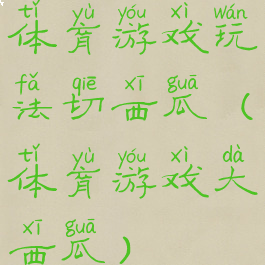 tǐ yù yóu xì wán
体育游戏玩
fǎ qiē xī guā
法切西瓜（
tǐ yù yóu xì dà
体育游戏大
xī guā
西瓜）